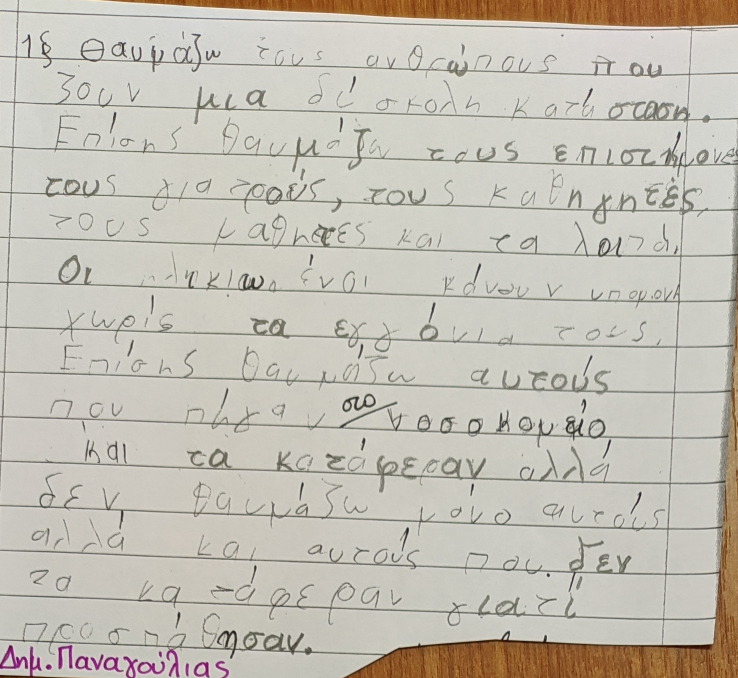 1§ Θαυμάζω τους ανθρώπους που
ζουν μια δύσκολη κατάσταση.
Επίσης θαυμάζω τους επιστήμονες
τους γιατρούς, τους καθηγητές,
τους μαθητές και τα λοιπά.
Οι ηλικιωμένοι κάνουν υπομονή
χωρίς τα εγγόνια τους.
Επίσης θαυμάζω αυτούς
που πήγαν στο νοσοκομείο
και τα κατάφεραν αλλά
δεν θαυμάζω μόνο αυτούς
αλλά και αυτούς που δεν
τα κατάφεραν γιατί
προσπάθησαν.
Δημ. Παναγούλιας